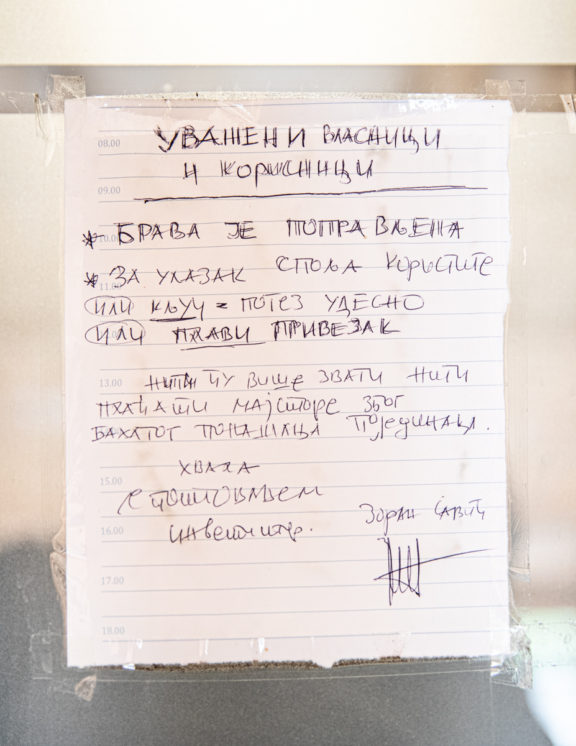 08.00 УВАЖЕНИ ВЛАСНИЦИ
И КОРИСНИЦИ
09.00
* БРАВА ЈЕ ПОПРАВЉЕНА
* ЗА УЛАЗАК СПОЉА КОРИСТИТЕ
11.00
ИЛИ КЉУЧ = ПОТЕЗ УДЕСНО
ИЛИ ПЛАВИ ПРИВЕЗАК
13.00 НИТИ ЋУ ВИШЕ ЗВАТИ НИТИ
ПЛАЋАТИ МАЈСТОРЕ ЗБОГ
БАХАТОГ ПОНАШАЊА ПОЈЕДИНАЦА.
ХВАЛА
15.00
С ПОШТОВАЊЕМ
Зоран Савић
16.00 инвеститор.
17.00
18.00